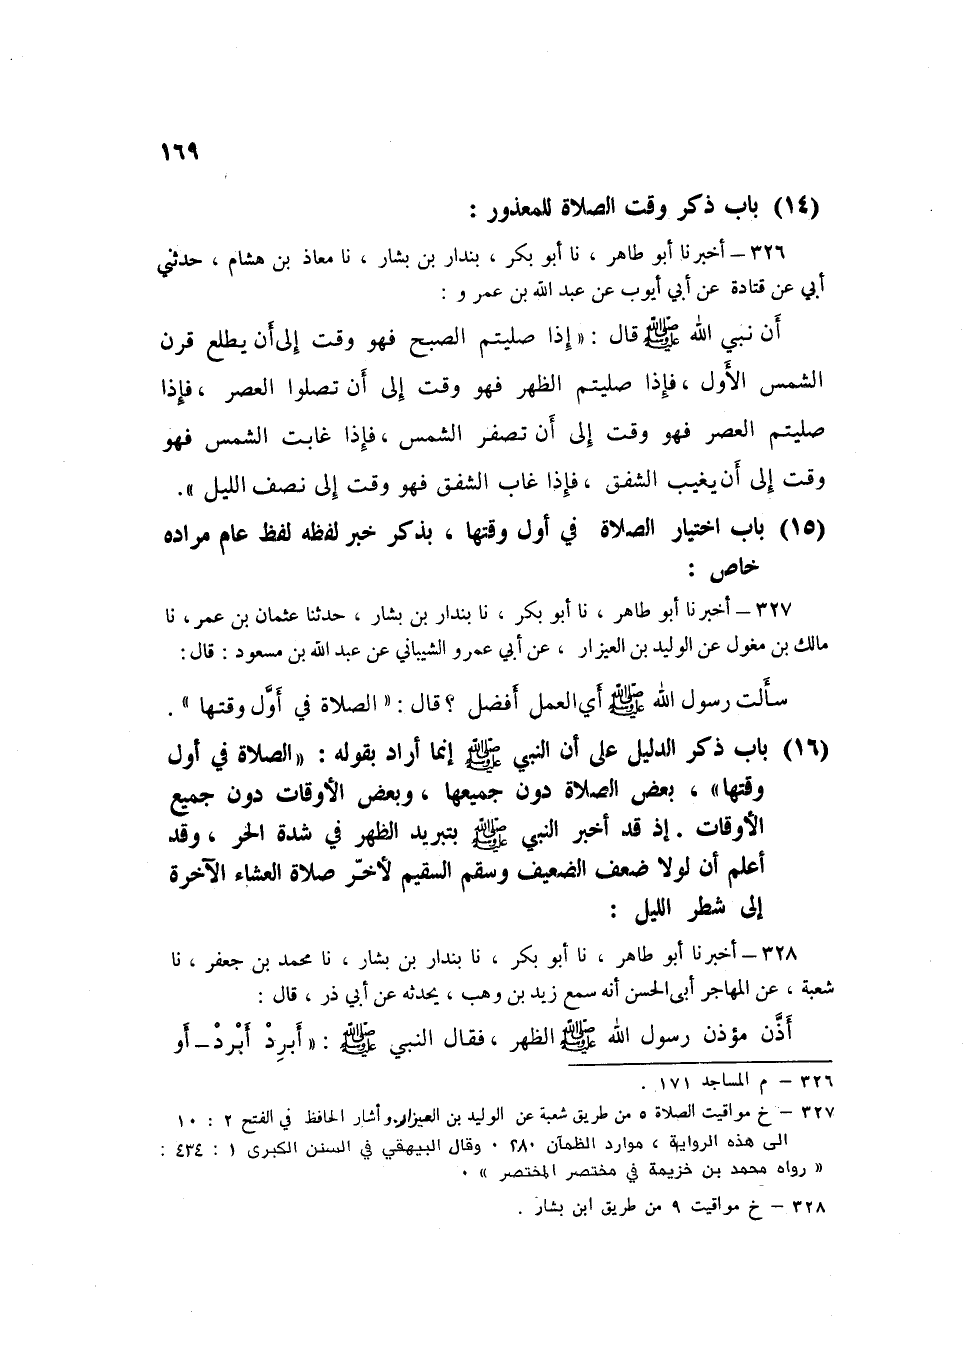 ١٦٩
(١٤) باب ذكر وقت الصلاة للمعذور :
٣٢٦ – أخبرنا أبو طاهر ، نا أبو بكر ، بندار بن بشار ، نا معاذ بن هشام ، حدثني
أبي عن قتادة عن أبي أيوب عن عبد الله بن عمر و :
أن نبي الله ﷺ قال : « إذا صليتم الصبح فهو وقت إلى أن يطلع قرن
الشمس الأول ، فإذا صليتم الظهر فهو وقت إلى أن تصلوا العصر ، فإذا
صليتم العصر فهو وقت إلى أن تصفر الشمس ، فإذا غابت الشمس فهو
وقت إلى أن يغيب الشفق ، فإذا غاب الشفق فهو وقت إلى نصف الليل » .
(١٥) باب اختيار الصلاة في أول وقتها ، بذكر خبر لفظه لفظ عام مراده
خاص :
٣٢٧ – أخبرنا أبو طاهر ، نا أبو بكر ، نا بندار بن بشار ، حدثنا عثمان بن عمر ، نا
مالك بن مغول عن الوليد بن العيزار ، عن أبي عمرو الشيباني عن عبد الله بن مسعود : قال :
سألت رسول الله ﷺ أي العمل أفضل ؟ قال : « الصلاة في أوَّل وقتها » .
(١٦) باب ذكر الدليل على أن النبي ﷺ إنما أراد بقوله : « الصلاة في أول
وقتها » ، بعض الصلاة دون جميعها ، وبعض الأوقات دون جميع
الأوقات . إذ قد أخبر النبي ﷺ بتبريد الظهر في شدة الحر ، وقد
أعلم أن لولا ضعف الضعيف وسقم السقيم لأخّر صلاة العشاء الآخرة
إلى شطر الليل :
٣٢٨ – أخبرنا أبو طاهر ، نا أبو بكر ، نا بندار بن بشار ، نا محمد بن جعفر ، نا
شعبة ، عن المهاجر أبى الحسن أنه سمع زيد بن وهب ، يحدثه عن أبي ذر ، قال :
أَذَّن مؤذن رسول الله ﷺ الظهر ، فقال النبي ﷺ : « أَبرِدْ أَبْردْ – أو
٣٢٦ – م المساجد ١٧١ .
٣٢٧ – خ مواقيت الصلاة ٥ من طريق شعبة عن الوليد بن العيزار. وأشار الحافظ في الفتح ٢ : ١٠
الى هذه الرواية ، موارد الظمآن ٢٨٠ ٠ وقال البيهقي في السنن الكبرى ١ : ٤٣٤ :
« رواه محمد بن خزيمة في مختصر المختصر » ٠
٣٢٨ – خ مواقيت ٩ من طريق ابن بشار .